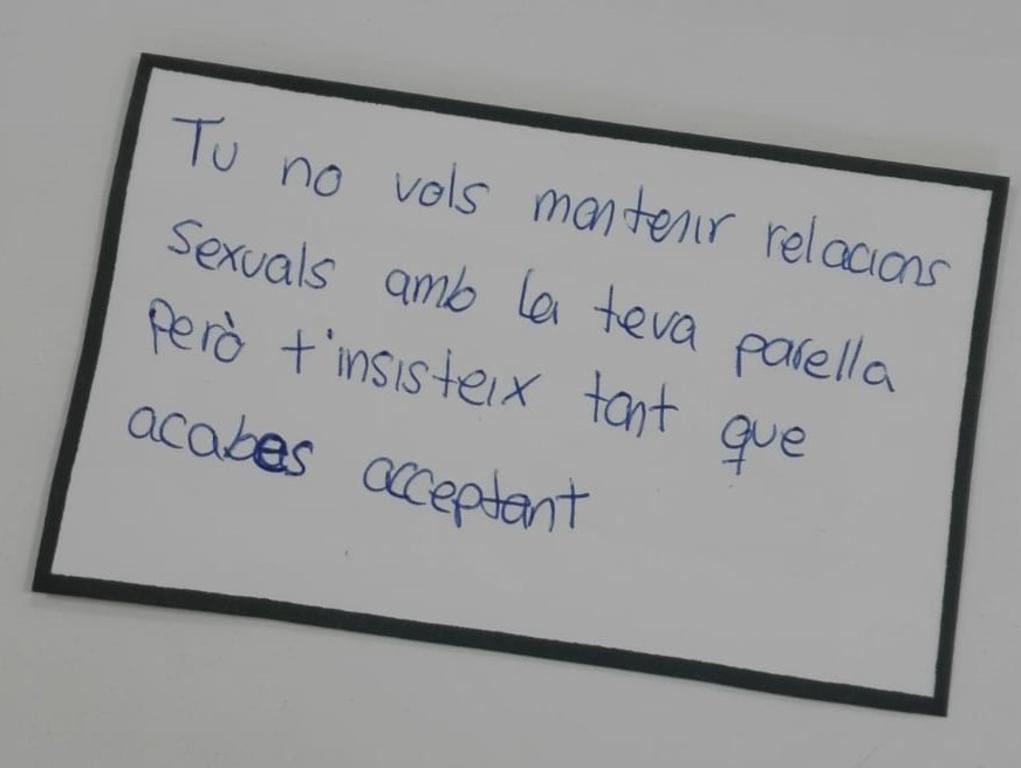 Tu no vols mantenir relacions
sexuals amb la teva parella
però t'insisteix tant que
acabes acceptant